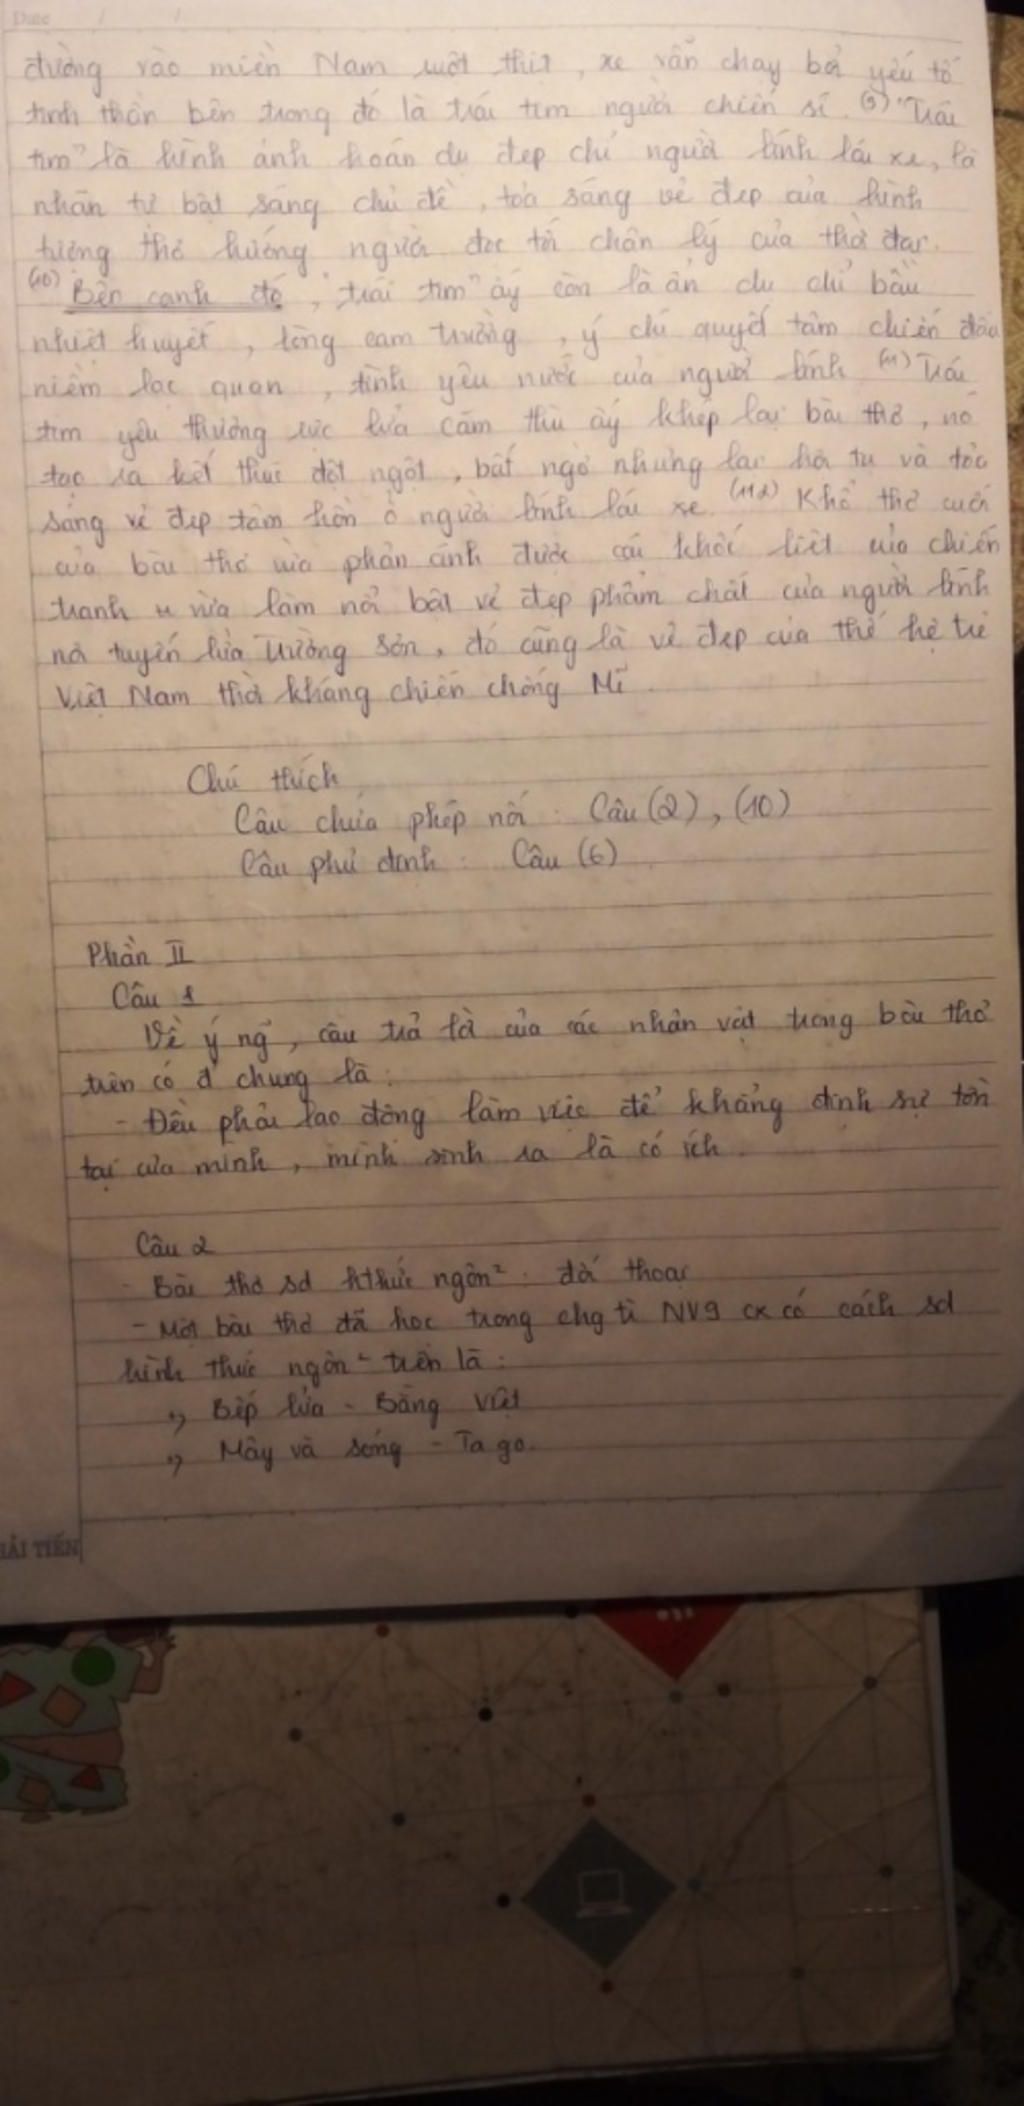 Date / /
đường vào miền Nam ruột thịt, xe vẫn chạy bởi yếu tố
tinh thần bên trong đó là trái tim người chiến sĩ. (9) "Trái
tim" là hình ảnh hoán dụ đẹp chỉ người lính lái xe, là
nhãn tự bật sáng chủ đề, tỏa sáng vẻ đẹp của hình
tượng thơ hướng người đọc tới chân lý của thời đại.
(10) Bên cạnh đó, "trái tim" ấy còn là ẩn dụ chỉ bầu
nhiệt huyết, lòng can trường, ý chí quyết tâm chiến đấu
niềm lạc quan, tình yêu nước của người lính (11) Trái
tim yêu thương rực lửa căm thù ấy khép lại bài thơ, nó
tạo ra kết thúc đột ngột, bất ngờ nhưng lại hội tụ và tỏa
sáng vẻ đẹp tâm hồn ở người lính lái xe. (12) Khổ thơ cuối
của bài thơ vừa phản ánh được cái khốc liệt của chiến
tranh vừa làm nổi bật vẻ đẹp phẩm chất của người lính
nơi tuyến lửa Trường Sơn, đó cũng là vẻ đẹp của thế hệ trẻ
Việt Nam thời kháng chiến chống Mĩ.
Chú thích
Câu chứa phép nối: Câu (2), (10)
Câu phủ định: Câu (6)
Phần II
Câu 1
Về ý ng~, câu trả lời của các nhân vật trong bài thơ
trên có đ chung là:
- Đều phải lao động làm việc để khẳng định sự tồn
tại của mình, mình sinh ra là có ích.
Câu 2
- Bài thơ sd hthức ngôn²: đối thoại
- Một bài thơ đã học trong chg tì NV9 cx có cách sd
hình thức ngôn² trên là:
+, Bếp lửa - Bằng Việt
+, Mây và sóng - Ta go.
HẢI TIẾN